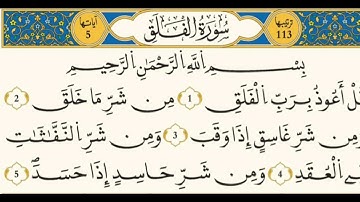 ترتيبها 113 سُورَةُ الْفَلَقِ آياتها 5
بِسْمِ اللَّهِ الرَّحْمَٰنِ الرَّحِيمِ
قُلْ أَعُوذُ بِرَبِّ الْفَلَقِ 1 مِن شَرِّ مَا خَلَقَ 2
مِن شَرِّ غَاسِقٍ إِذَا وَقَبَ 3 وَمِن شَرِّ النَّفَّٰثَٰتِ
فِے الْعُقَدِ 4 وَمِن شَرِّ حَاسِدٍ إِذَا حَسَدَ 5